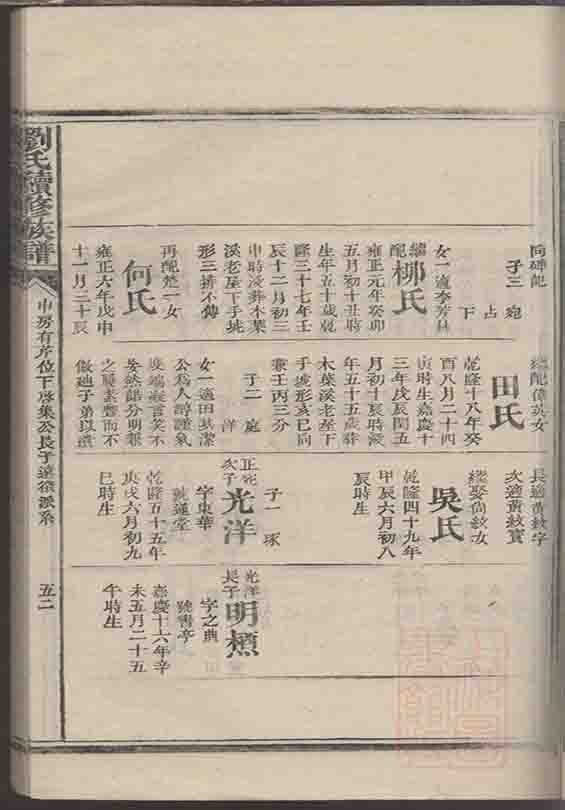 劉氏續修族譜
中房有芹位下
五二
向碑記
子三
占
下
女一適李芳
繼配
柳氏
雍正元年癸卯
五月初十丑時
生年五十歲乾
隆三十七年壬
辰十二月初三
申時沒葬木葉
溪老屋下手坵
形三排不傳
再配楚一女
何氏
雍正六年戊申
十一月二十辰
繼配偉英女
田氏
乾隆十八年癸
酉八月二十四
寅時生嘉慶十
三年戊辰閏五
月初十辰時沒
年五十五歲葬
木葉溪老屋下
手坵形亥巳向
兼壬丙三分
子二
洋
女一適田
公為人謹氣
度端言笑不
妄然錯分明報
之豐而不
做子弟以遺
長適黃紋字
次適黃紋寶
繼娶倘紋女
吳氏
乾隆四十九年
甲辰六月初八
辰時生
子一 琢
正
次子
光洋
字東華
號蓮堂
乾隆五十五年
庚戌六月初九
巳時生
光洋
長子
明
字之典
號書亭
嘉慶十六年辛
未五月二十五
午時生